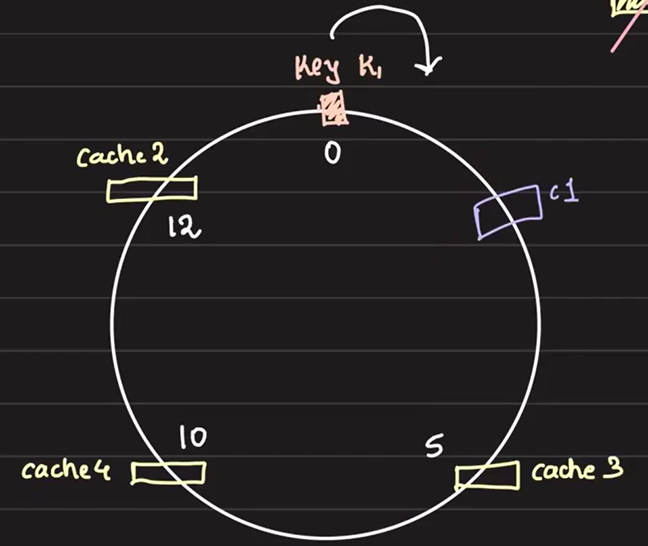 Key K₁
0
cache 2
c1
12
10
5
cache 4
cache 3